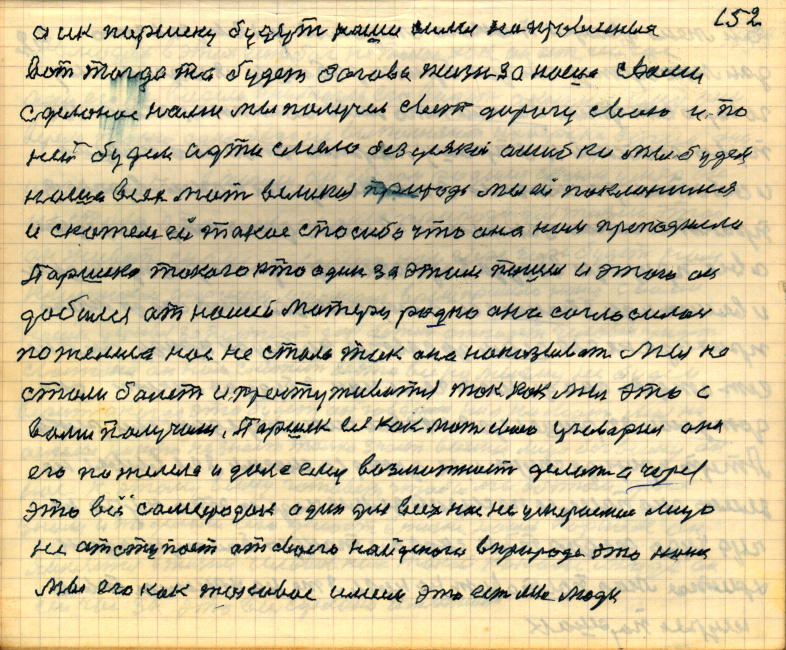 152
а ик паршеку будут наши силы направления
вот тогда та будет загова жизн за наше своми
сделоное нами мы получем свет дорогу свою и по
ней будем идти смело без усякой ашибки мы будем
наша всех мат великая природа мы ей поклонимся
и скажем ей такое спасибо что она нам преподнесла
Паршека такого кто один за этим пошел и этого он
добился ат нашей матери родно ана согласилас
пожелела нас не стала так она наказыват мы не
стали болет и простуживатся так как мы это с
вами получаем, Паршек ея как мат свою уговарил она
его пожелела и дала ему возможност делат а через
это всё самородак один для всех нас не умераемае лицо
не атступает ат своего найденого в природе это нона
мы его как таковое имеем это ест мы люди